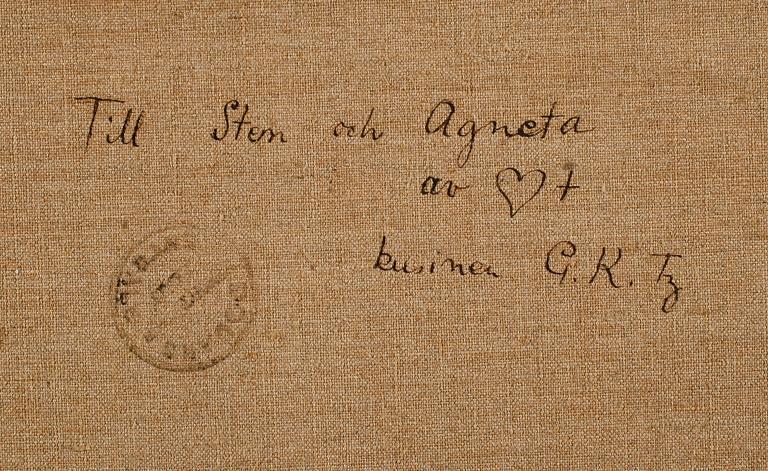 Till Sten och Agneta
av ♡ +
kusinen G. K. Tz